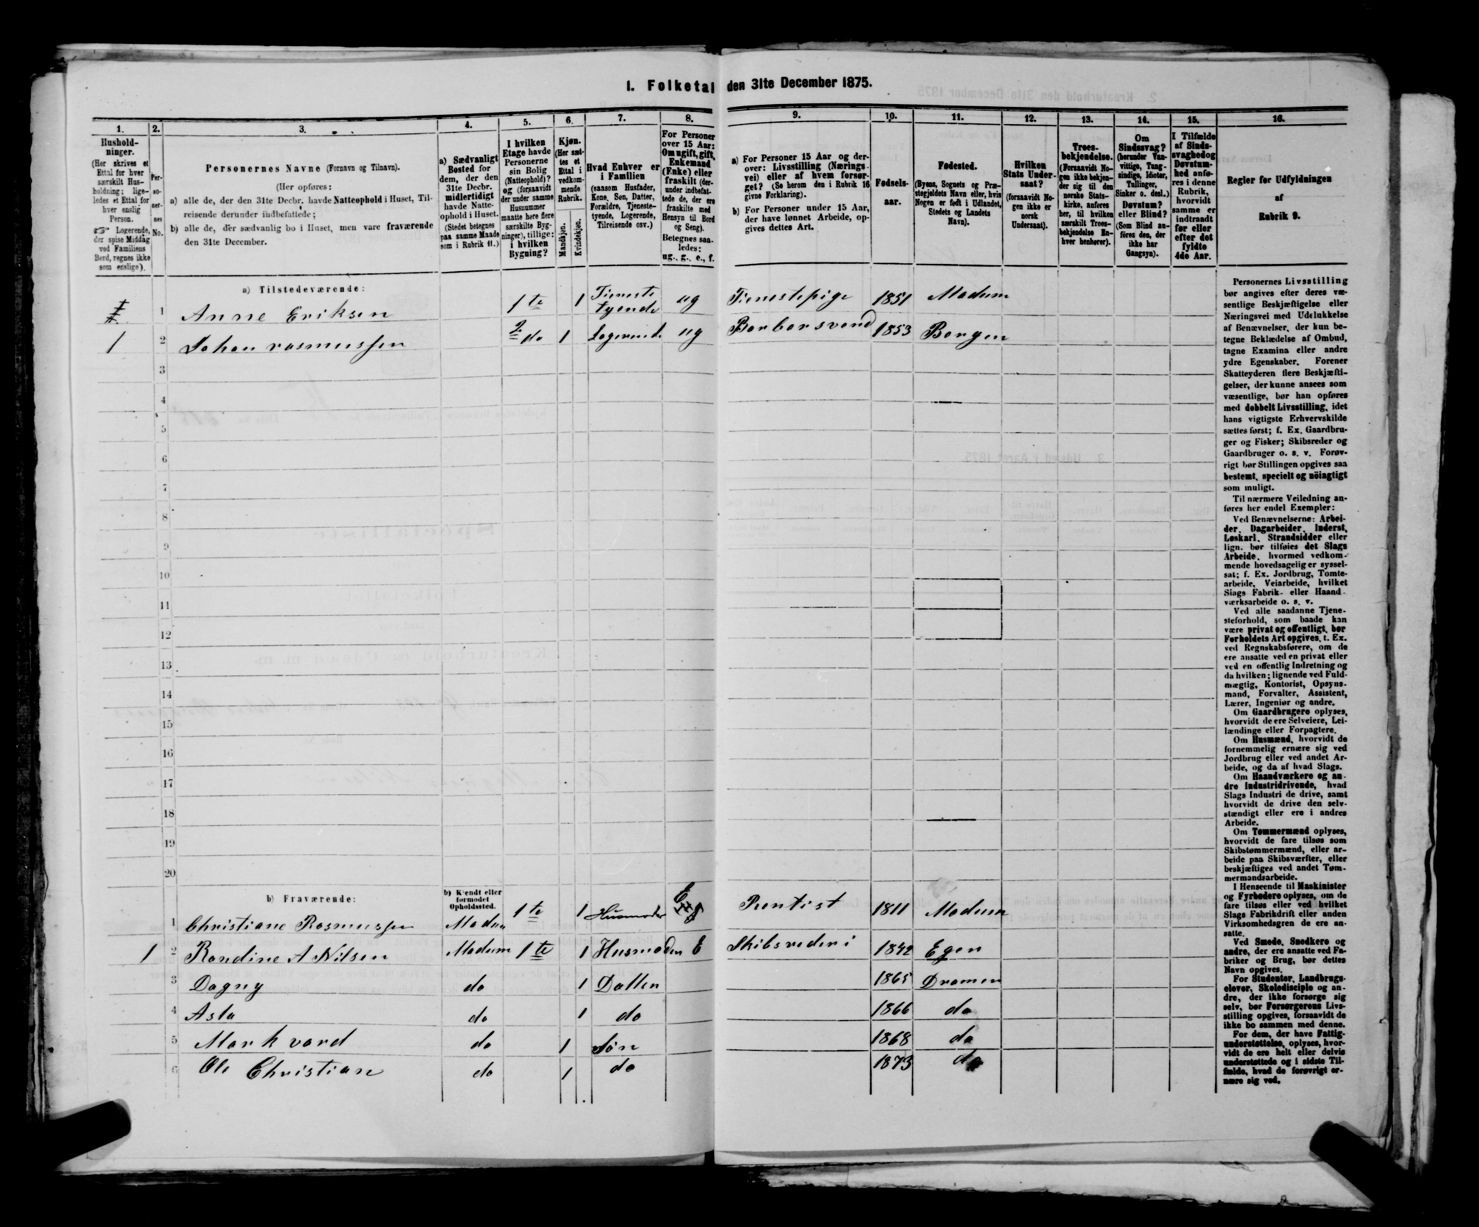 1. Folketal den 31te December 1875.
1. 2. 3. 4. 5. 6. 7. 8. 9. 10. 11. 12. 13. 14. 15. 16.
Hushold-
ninger.
(Her skrives et
Ettal for hver
særskilt Hus-
holdning; lige-
ledes et Ettal for
hver enslig
Person.
Logerende,
der spise Middag
ved Familiens
Bord, regnes ikke
som enslige).
Per-
so-
ner-
nes
No.
Personernes Navne (Fornavn og Tilnavn).
(Her opføres:
a) alle de, der den 31te Decbr. havde Natteophold i Huset, Til-
reisende derunder indbefattede;
b) alle de, der sædvanlig bo i Huset, men vare fraværende
den 31te December.
a) Sædvanligt
Bosted for
dem, der den
31te Decbr.
midlertidigt
havde Natte-
ophold i Huset.
(Stedet betegnes
paa samme Maade
som i Rubrik 11.)
I hvilken
Etage havde
Personerne
sin Bolig
(Natteophold)?
og (forsaavidt
der under samme
Husnummer
maatte høre flere
særskilte Byg-
ninger), tillige:
i hvilken
Bygning?
Kjøn.
(Her sæt-
tes et
Ettal i
vedkom-
mende
Rubrik.
Mandkjøn.
Kvindekjøn.
Hvad Enhver er
i Familien
(saasom Husfader,
Kone, Søn, Datter,
Forældre, Tjeneste-
tyende, Logerende,
Tilreisende osv.)
For Personer
over 15 Aar:
Om ugift, gift,
Enkemand
(Enke) eller
fraskilt (der-
under indbefat-
tede de, der ere
fraskilte med
Hensyn til Bord
og Seng).
Betegnes saa-
ledes:
ug., g., e., f.
a) For Personer 15 Aar og der-
over: Livsstilling (Nærings-
vei) eller af hvem forsør-
get? (Se herom den i Rubrik 16
givne Forklaring).
b) For Personer under 15 Aar,
der have lønnet Arbeide, op-
gives dettes Art.
Fødsels-
aar.
Fødested.
(Byens, Sognets og Præ-
stegjeldets Navn eller, hvis
Nogen er født i Udlandet,
Stedets og Landets
Navn).
Hvilken
Stats Under-
saat?
(forsaavidt No-
gen ikke er
norsk
Undersaat).
Troes-
bekjendelse.
(Forsaavidt No-
gen ikke bekjen-
der sig til den
norske Stats-
kirke, anføres
her, til hvilken
særskilt Troes-
bekjendelse En-
hver henhører).
Om
Sindssvag?
(herunder Van-
vittige, Tung-
sindige, Idioter,
Tullinger,
Sinker o. desl.)
Døvstum?
eller Blind?
(Som Blind an-
føres den, der
ikke har
Gangsyn).
I Tilfælde
af Sinds-
svaghed og
Døvstum-
hed anfø-
res i denne
Rubrik,
hvorvidt
samme er
indtraadt
før eller
efter det
fyldte
4de Aar.
Regler for Udfyldningen
af
Rubrik 9.
a) Tilstedeværende:
1 Anne Eriksen 1te 1 Tieneste Tyende ug Tienestepige 1851 Modum
1 2 Johan rasmussen 2 do 1 Logerende ug 1853 Bergen
3
4
5
6
7
8
9
10
11
12
13
14
15
16
17
18
19
20
b) Fraværende:
b) Kjendt eller
formodet
Opholdssted.
1 Christiane Rasmussen Modum 1te 1 Husmoder E Rentist 1811 Modum
1 2 Randine A Nilsen Modum 1te 1 Husmoder E Skibsrederi 1842 Egen
3 Dagny do 1 Datter 1865 Dramen
4 Asta do 1 do 1866 do
5 Markvard do 1 Søn 1868 do
6 Ole Christian do 1 do 1873 do
Personernes Livsstilling
bør angives efter deres væ-
sentlige Beskjæftigelse eller
Næringsvei med Udelukkelse
af Benævnelser, der kun be-
tegne Beklædelse af Ombud,
tagne Examina eller andre
ydre Egenskaber. Forener
Skatteyderen flere Beskjæfti-
gelser, der kunne ansees som
væsentlige, bør han opføres
med dobbelt Livsstilling, idet
hans vigtigste Erhvervskilde
sættes først; f. Ex. Gaardbru-
ger og Fisker; Skibsreder og
Gaardbruger o. s. v. Forøv-
rigt bør Stillingen opgives saa
bestemt, specielt og nöiagtigt
som muligt.
Til nærmere Veiledning an-
føres her endel Exempler:
Ved Benævnelserne: Arbei-
der, Dagarbeider, Inderst,
Løskarl, Strandsidder eller
lign. bør tilføies det Slags
Arbeide, hvormed vedkom-
mende hovedsagelig er syssel-
sat; f. Ex. Jordbrug, Tomte-
arbeide, Veiarbeide, hvilket
Slags Fabrik- eller Haand-
værksarbeide o. s. v.
Ved alle saadanne Tjene-
steforhold, som baade kan
være privat og offentligt, bør
Forholdets Art opgives, t. Ex.
ved Regnskabsførere, om de
ere ansatte ved en privat eller
ved en offentlig Indretning og
da hvilken; lignende ved Fuld-
mægtig, Kontorist, Opsyns-
mand, Forvalter, Assistent,
Lærer, Ingeniør og andre.
Om Gaardbrugere oplyses,
hvorvidt de ere Selveiere, Lei-
lændinge eller Forpagtere.
Om Husmænd, hvorvidt de
fornemmelig ernære sig ved
Jordbrug eller ved andet Ar-
beide, og da af hvad Slags.
Om Haandværkere og an-
dre Industridrivende, hvad
Slags Industri de drive, samt
hvorvidt de drive den selv-
stændigt eller ere i andres
Arbeide.
Om Tømmermænd oplyses,
hvorvidt de fare tilsøs som
Skibstømmermænd, eller ar-
beide paa Skibsværfter, eller
beskjæftiges ved andet Tøm-
mermandsarbeide.
I Henseende til Maskinister
og Fyrbødere oplyses, om de
fare tilsøs eller ved hvilket
Slags Fabrikdrift eller anden
Virksomhedsgren de ere an-
satte.
Ved Smede, Snedkere og
andre, der ere ansatte ved Fa-
briker og Brug, bør dettes
Navn opgives.
For Studenter, Landbrugs-
elever, Skoledisciple og an-
dre, der ikke forsørge sig
selv, bør Forsørgerens Livs-
stilling opgives, forsaavidt de
ikke bo sammen med denne.
For dem, der have Fattig-
understøttelse, oplyses, hvor-
vidt de ere helt eller delvis
understøttede og i sidste Til-
fælde, hvad de forøvrigt er-
nære sig ved.